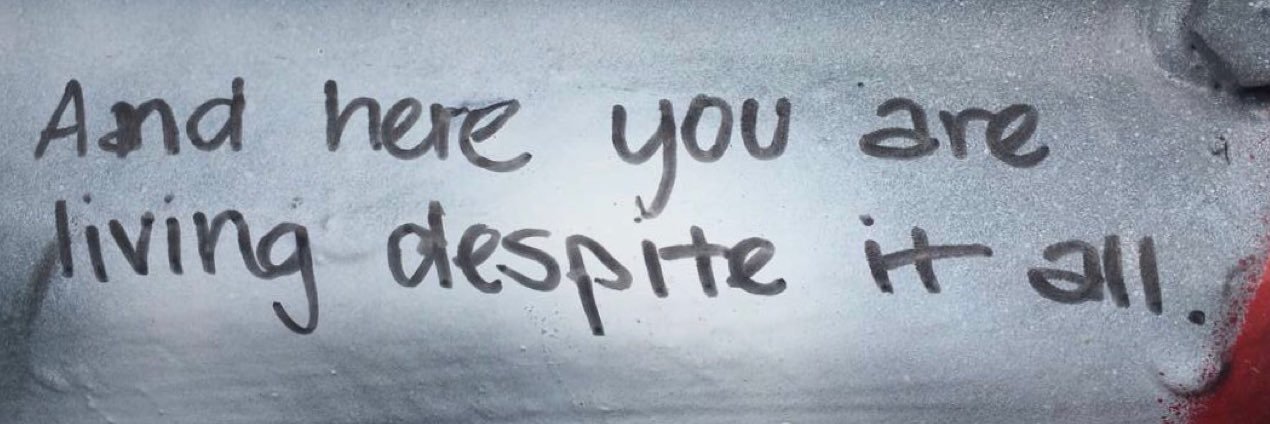 And here you are
living despite it all.